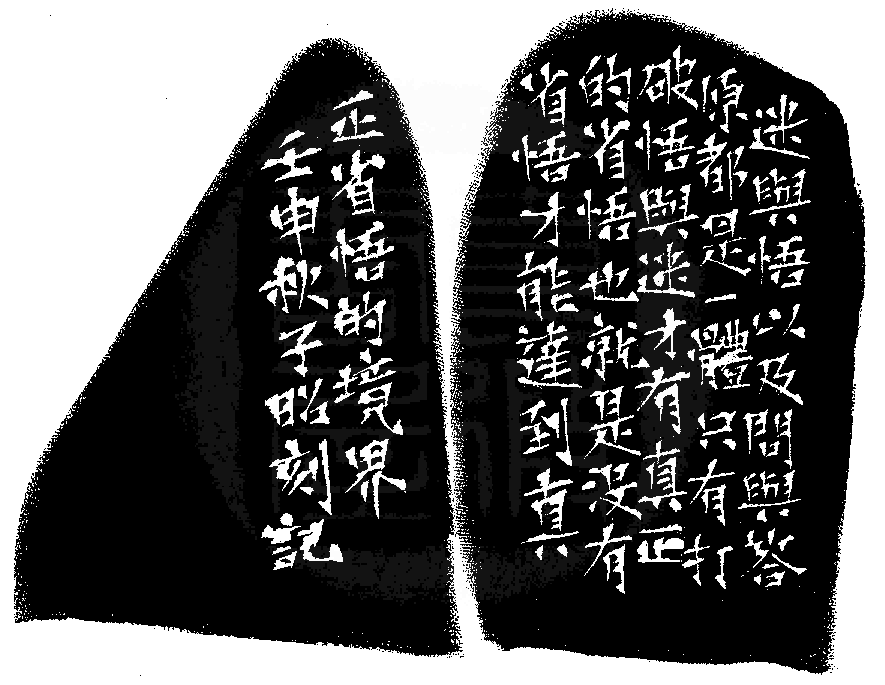 迷與悟以及問與答
原都是一體只有打
破悟與迷才有真正
的省悟也就是沒有
省悟才能達到真
正省悟的境界
壬申秋子昭刻記